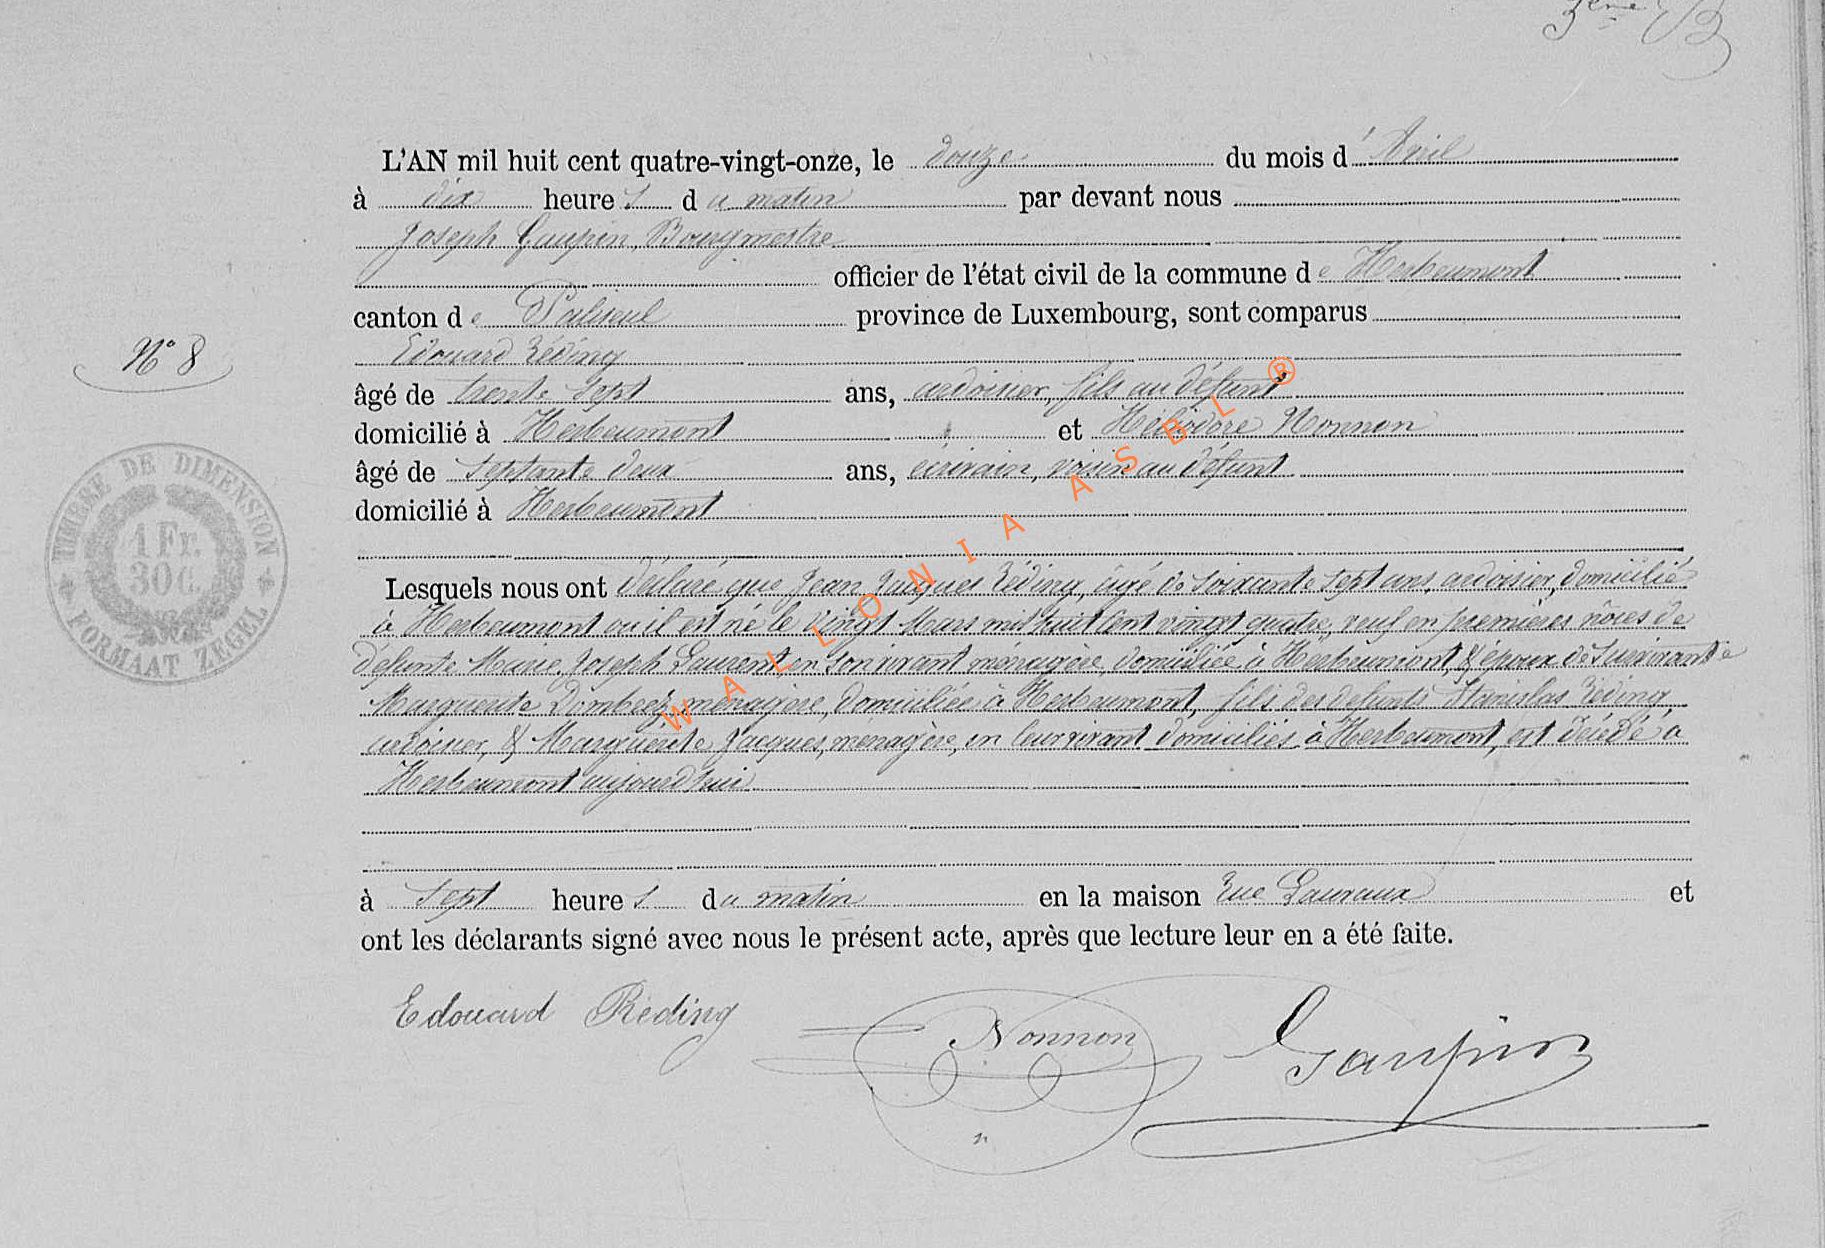 3eme
L'AN mil huit cent quatre-vingt-onze, le douze du mois d'Avril
à dix heures du matin par devant nous
Joseph Gaupin, Bourgmestre
officier de l'état civil de la commune de Herbeumont
canton de Paliseul province de Luxembourg, sont comparus
Edouard Réding
âgé de trente sept ans, ardoisier, fils au défunt
domicilié à Herbeumont et Héliodore Nonnon
âgé de septante deux ans, écrivain, voisin au défunt
domicilié à Herbeumont
Lesquels nous ont déclaré que Jean Jacques Réding, âgé de soixante sept ans, ardoisier, domicilié
à Herbeumont où il est né le vingt Mars mil huit cent vingt quatre, veuf en premières nôces de
défunte Marie Joseph Laurent en son vivant ménagère, domiciliée à Herbeumont, & époux de survivante
Marguerite ménagère, domiciliée à Herbeumont, fils des défunts Stanislas Réding
ardoisier, & Marguerite Jacques, ménagère, en leur vivant domiciliés à Herbeumont, est décédé à
Herbeumont aujourd'hui
à sept heures du matin en la maison rue Lauraux et
ont les déclarants signé avec nous le présent acte, après que lecture leur en a été faite.
Edouard Reding Nonnon Gaupin
N° 8
TIMBRE DE DIMENSION
1 Fr.
30 C.
FORMAAT ZEGEL
WALLONIA ASBL ®